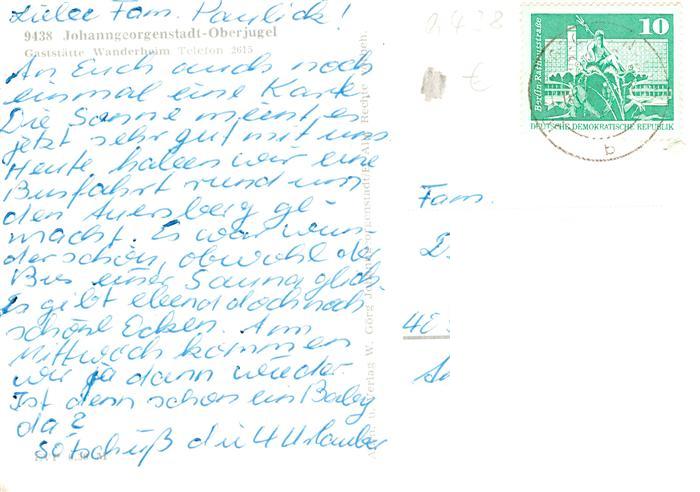 Lieber Fam. Paulick!
9438 Johanngeorgenstadt-Oberjugel
Gaststätte Wanderheim Telefon 2615
An Euch auch noch
einmal eine Karte
Die Sonne meint es
jetzt sehr gut mit uns
Heute haben wir eine
Busfahrt rund um
den Auersberg ge-
macht. Es war wun
derschön, obwohl der
Bus einer Sauna glich.
Es gibt eben doch noch
schöne Ecken. Am
Mittwoch kommen
wir ja dann wieder.
Ist denn schon ein Baby
da?
so tschüß die 4 Urlauber
Verlag W. Görg
10
Berlin, Rathausstraße
DEUTSCHE DEMOKRATISCHE REPUBLIK
b
€
Fam.